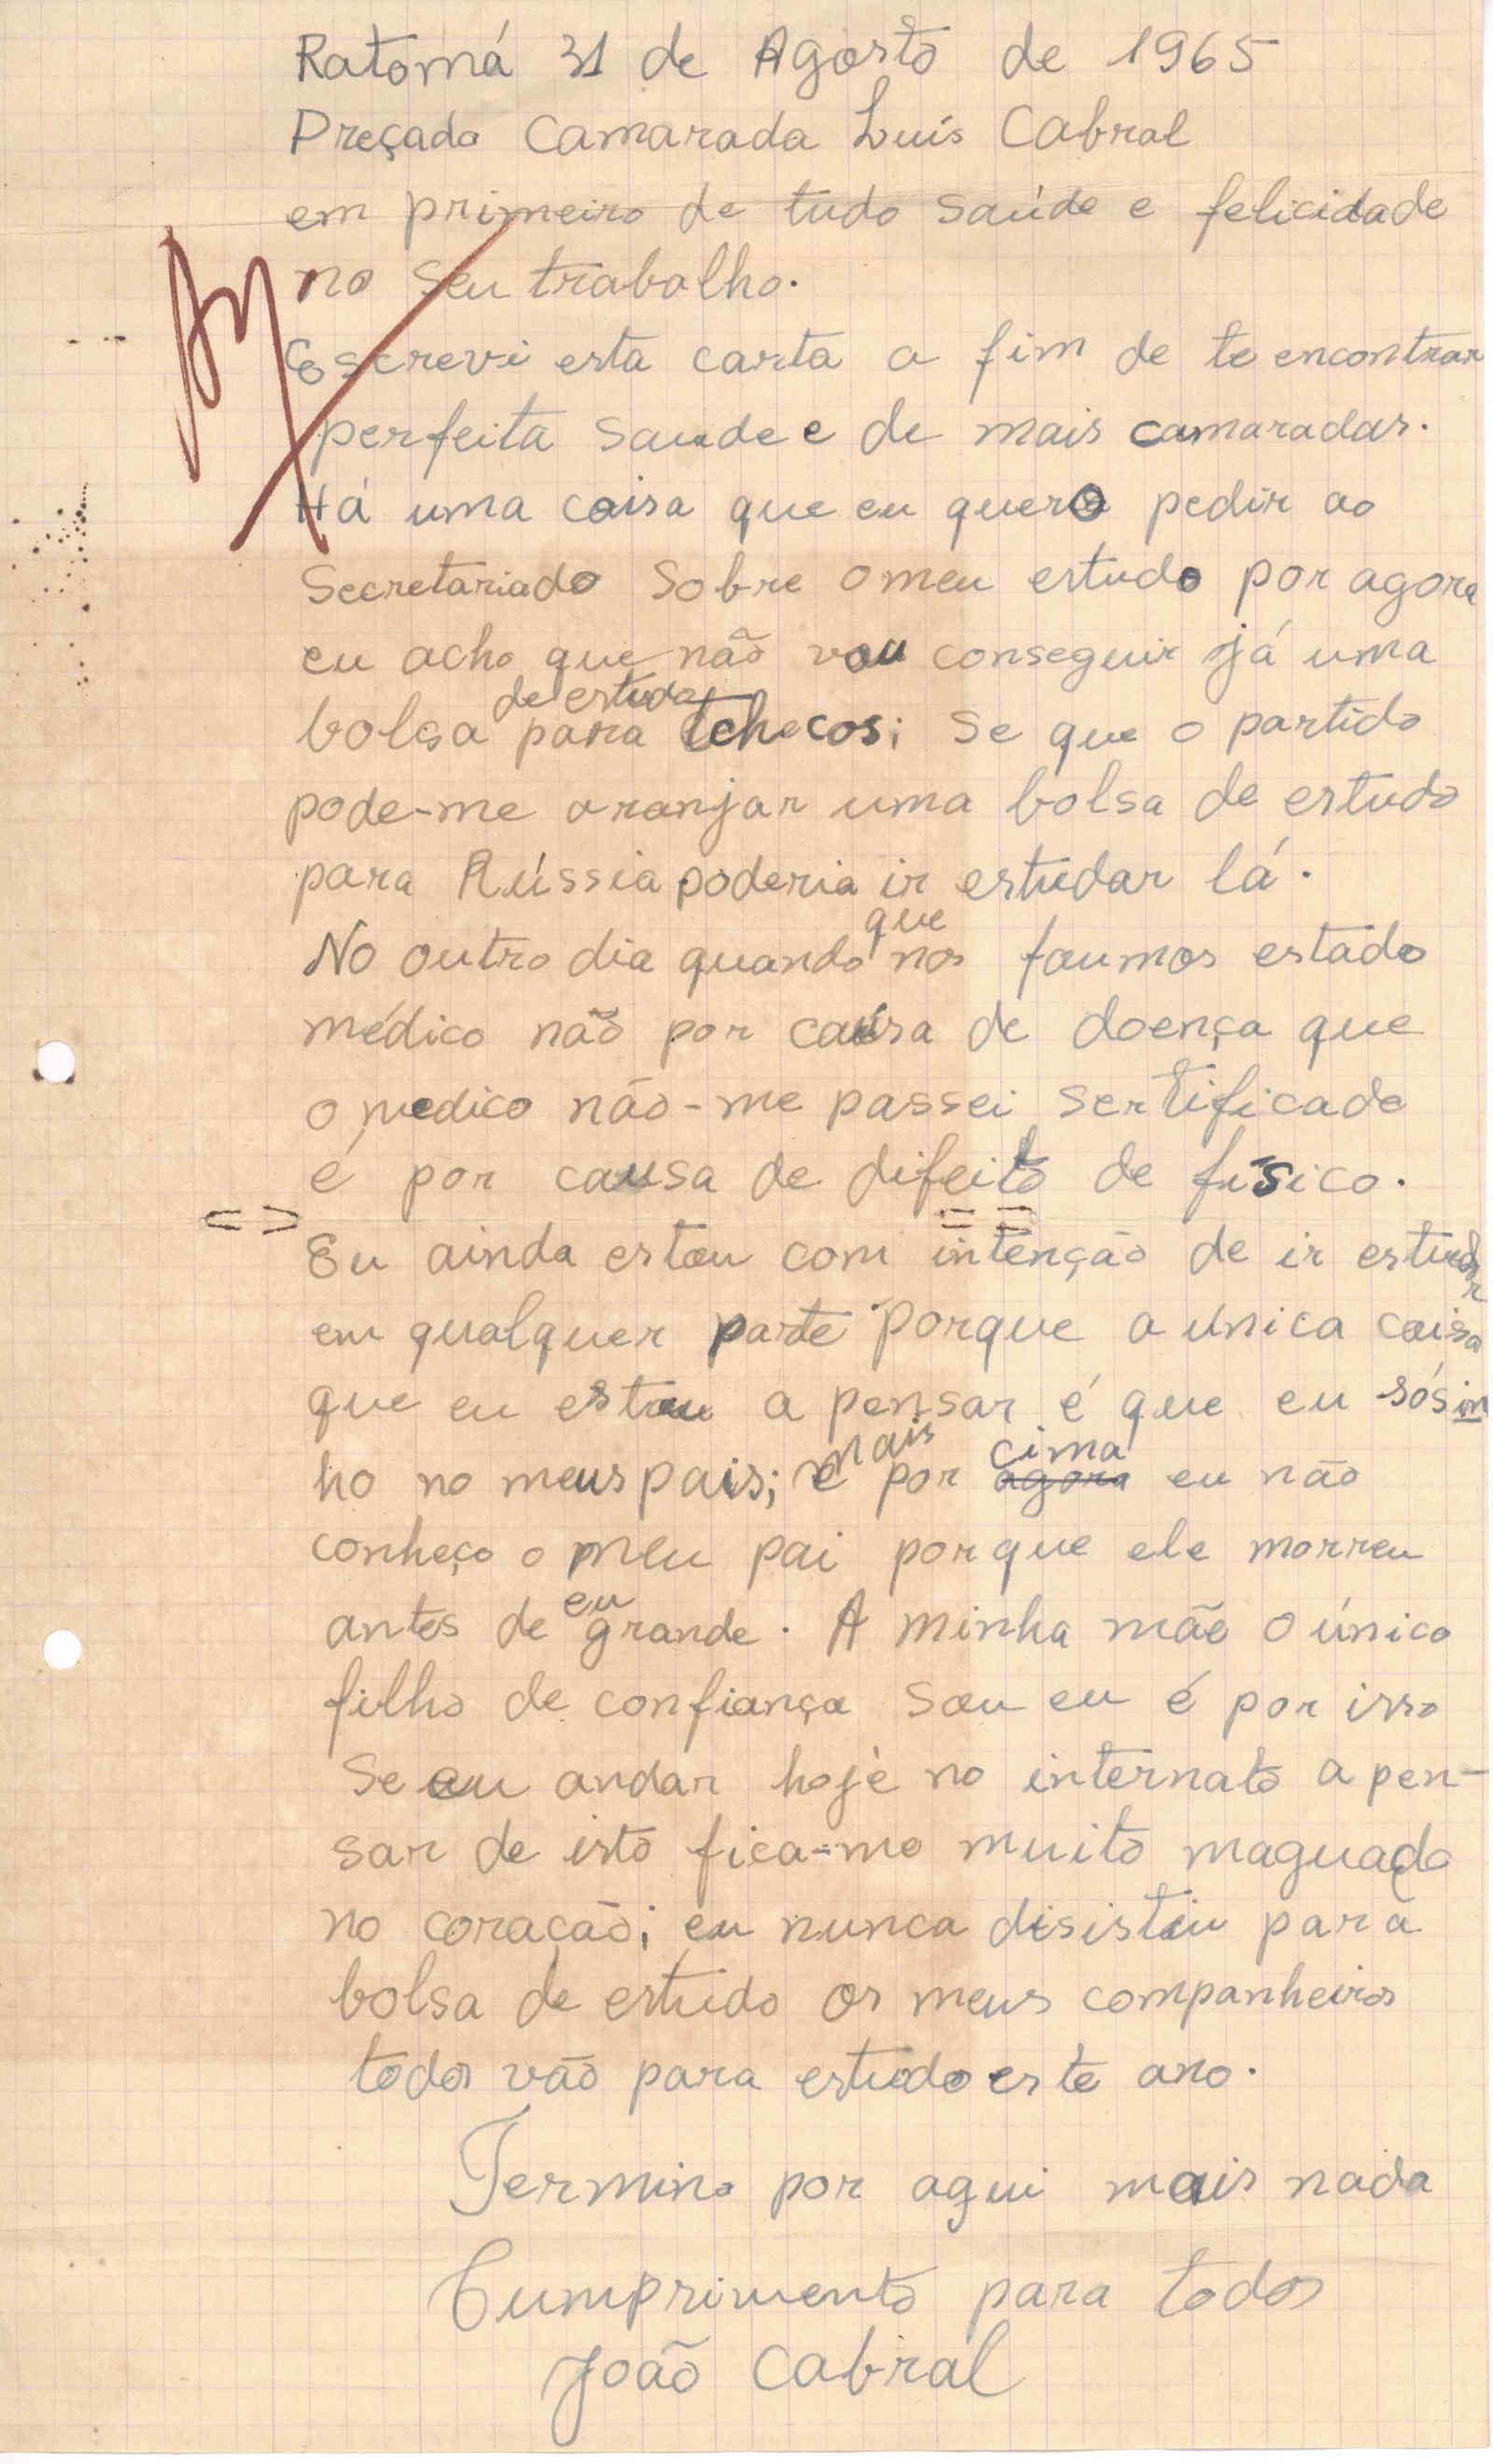 Ratomá 31 de Agosto de 1965
Preçado Camarada Luís Cabral
em primeiro de tudo saúde e felicidade
no seu trabalho.
Escrevi esta carta a fim de te encontrar
perfeita saude e de mais camaradas.
Há uma coisa que eu quero pedir ao
Secretariado Sobre o meu estudo por agora
eu acho que não vou conseguir já uma
bolsa de estudo para tchecos; se que o partido
pode-me aranjar uma bolsa de estudo
para Rússia poderia ir estudar lá.
No outro dia quando que nos foumos estado
médico não por causa de doença que
o medico não-me passei sertificade
é por causa de difeito de fisico.
Eu ainda estou com intenção de ir estudar
em qualquer parte porque a única coisa
que eu estou a pensar é que eu sósin
ho no meus pais; e mais por cima eu não
conheço o meu pai porque ele morreu
antes de eu grande. A minha mãe o único
filho de confiança sou eu é por isso
Se eu andar hoje no internato a pen-
sar de isto fica-me muito maguado
no coração; eu nunca disistiu para
bolsa de estudo os meus companheiros
todos vão para estudo este ano.
Termino por aqui mais nada
Cumprimento para todos
João Cabral